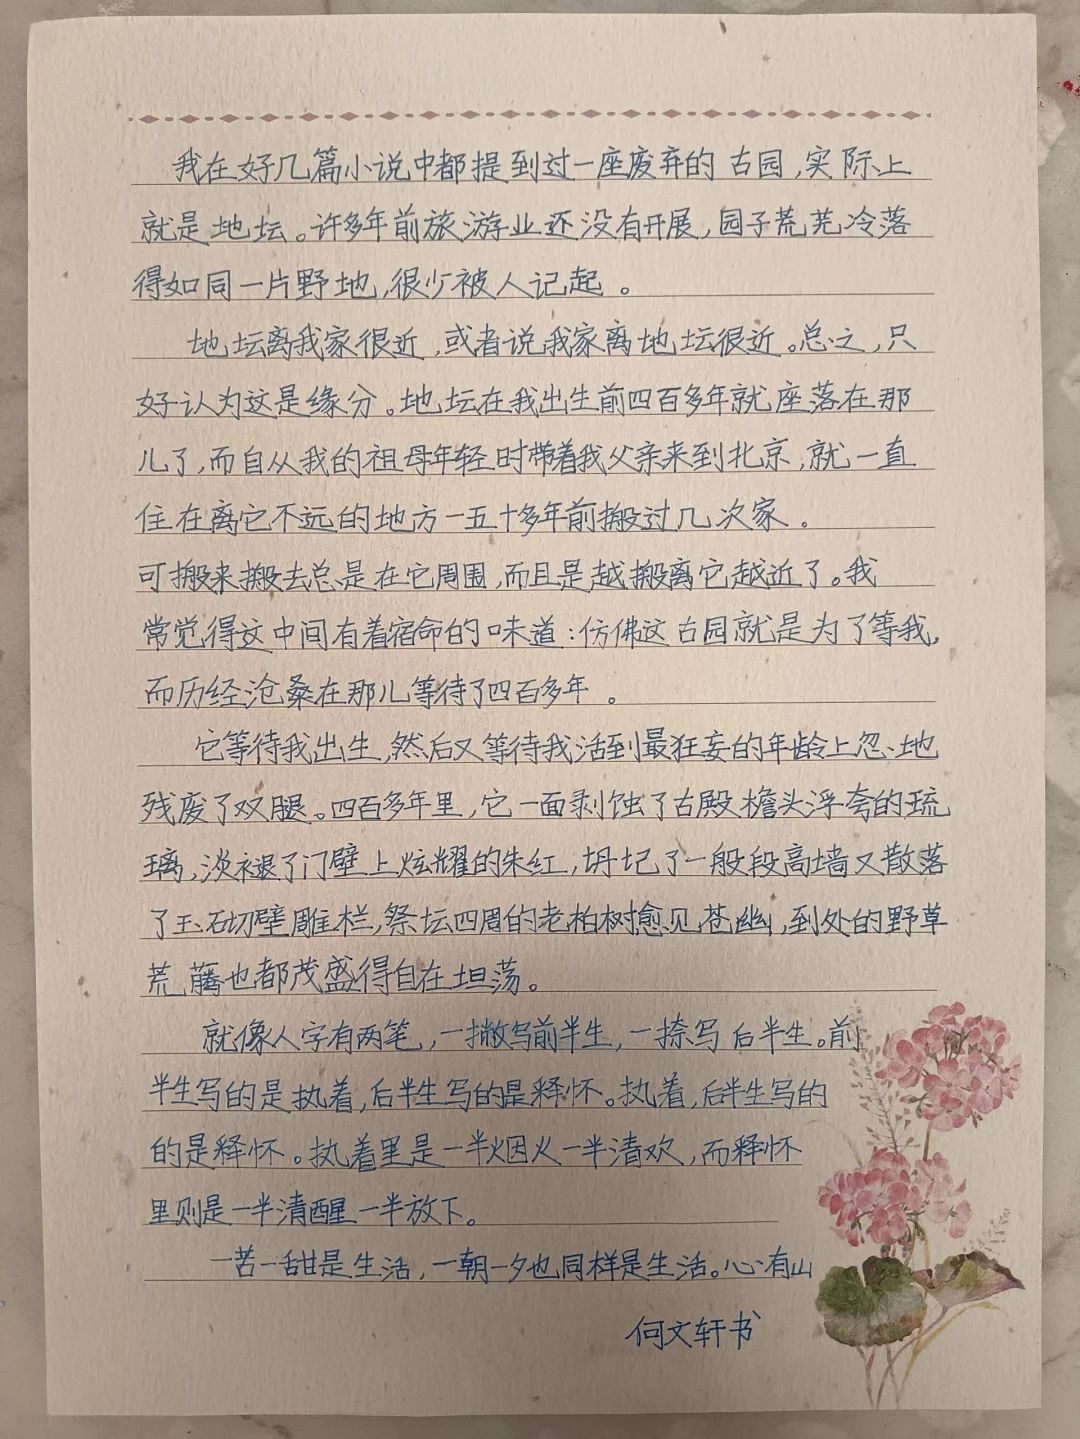 我在好几篇小说中都提到过一座废弃的古园,实际上
就是地坛。许多年前旅游业还没有开展,园子荒芜冷落
得如同一片野地,很少被人记起。
地坛离我家很近,或者说我家离地坛很近。总之,只
好认为这是缘分。地坛在我出生前四百多年就座落在那
儿了,而自从我的祖母年轻时带着我父亲来到北京,就一直
住在离它不远的地方一五十多年前搬过几次家。
可搬来搬去总是在它周围,而且是越搬离它越近了。我
常觉得这中间有着宿命的味道:仿佛这古园就是为了等我,
而历经沧桑在那儿等待了四百多年。
它等待我出生,然后又等待我活到最狂妄的年龄上忽地
残废了双腿。四百多年里,它一面剥蚀了古殿檐头浮夸的琉
璃,淡褪了门壁上炫耀的朱红,坍圮了一般段高墙又散落
了玉砌壁雕栏,祭坛四周的老柏树愈见苍幽,到处的野草
荒藤也都茂盛得自在坦荡。
就像人字有两笔,一撇写前半生,一捺写后半生。前
半生写的是执着,后半生写的是释怀。执着,后半生写的
的是释怀。执着里是一半烟火一半清欢,而释怀
里则是一半清醒一半放下。
一苦一甜是生活,一朝一夕也同样是生活。心有山
何文轩书